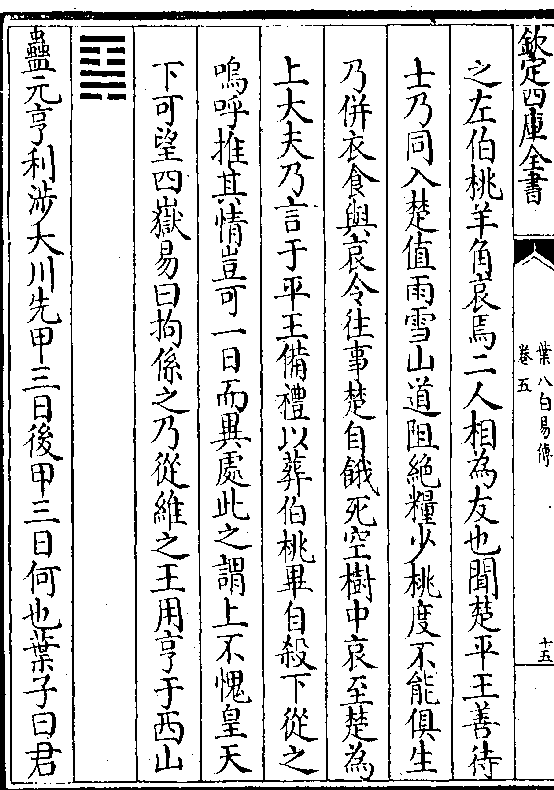 欽定四庫全書
葉八白易傳
卷五
十五
之左伯桃羊角哀焉二人相為友也聞楚平王善待
士乃同入楚值雨雪山道阻絕糧少桃度不能俱生
乃併衣食與哀令往事楚自餓死空樹中哀至楚為
上大夫乃言于平王備禮以葬伯桃畢自殺下從之
嗚呼推其情豈可一日而異處此之謂上不愧皇天
下可望四嶽易曰拘係之乃從維之王用亨于西山
䷑
蠱元亨利涉大川先甲三日後甲三日何也葉子曰君